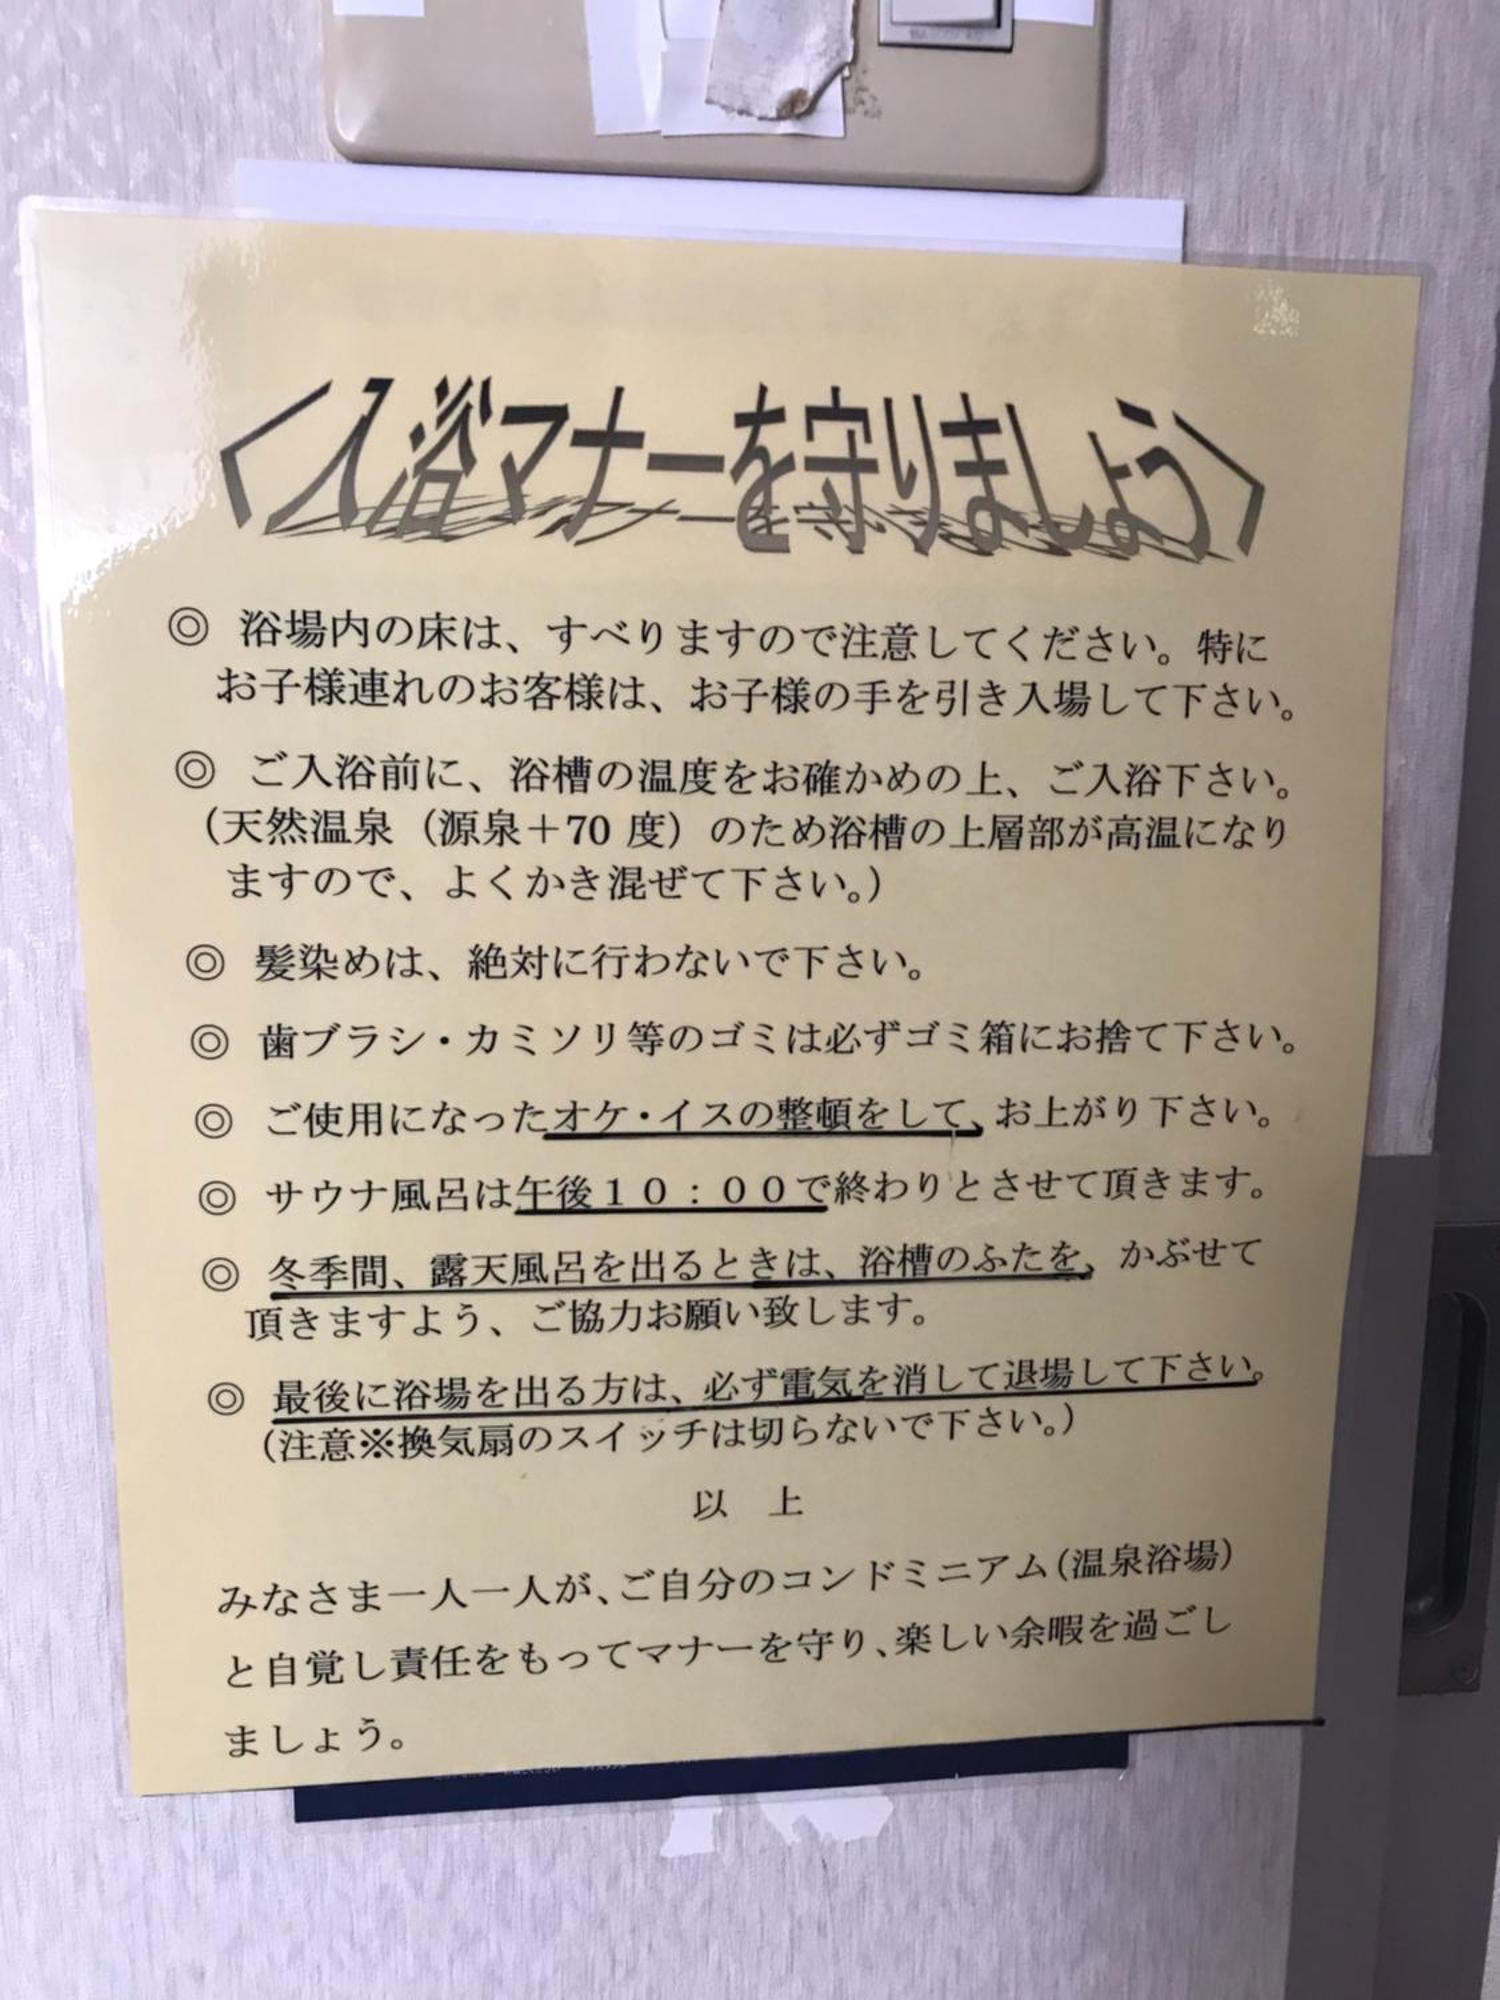 <入浴マナーを守りましょう>
◎ 浴場内の床は、すべりますので注意してください。特に
お子様連れのお客様は、お子様の手を引き入場して下さい。
◎ ご入浴前に、浴槽の温度をお確かめの上、ご入浴下さい。
(天然温泉（源泉＋70 度）のため浴槽の上層部が高温になり
ますので、よくかき混ぜて下さい。)
◎ 髪染めは、絶対に行わないで下さい。
◎ 歯ブラシ・カミソリ等のゴミは必ずゴミ箱にお捨て下さい。
◎ ご使用になったオケ・イスの整頓をして、お上がり下さい。
◎ サウナ風呂は午後１０：００で終わりとさせて頂きます。
◎ 冬季間、露天風呂を出るときは、浴槽のふたを、かぶせて
頂きますよう、ご協力お願い致します。
◎ 最後に浴場を出る方は、必ず電気を消して退場して下さい。
(注意※換気扇のスイッチは切らないで下さい。)
以　上
みなさま一人一人が、ご自分のコンドミニアム(温泉浴場)
と自覚し責任をもってマナーを守り、楽しい余暇を過ごし
ましょう。